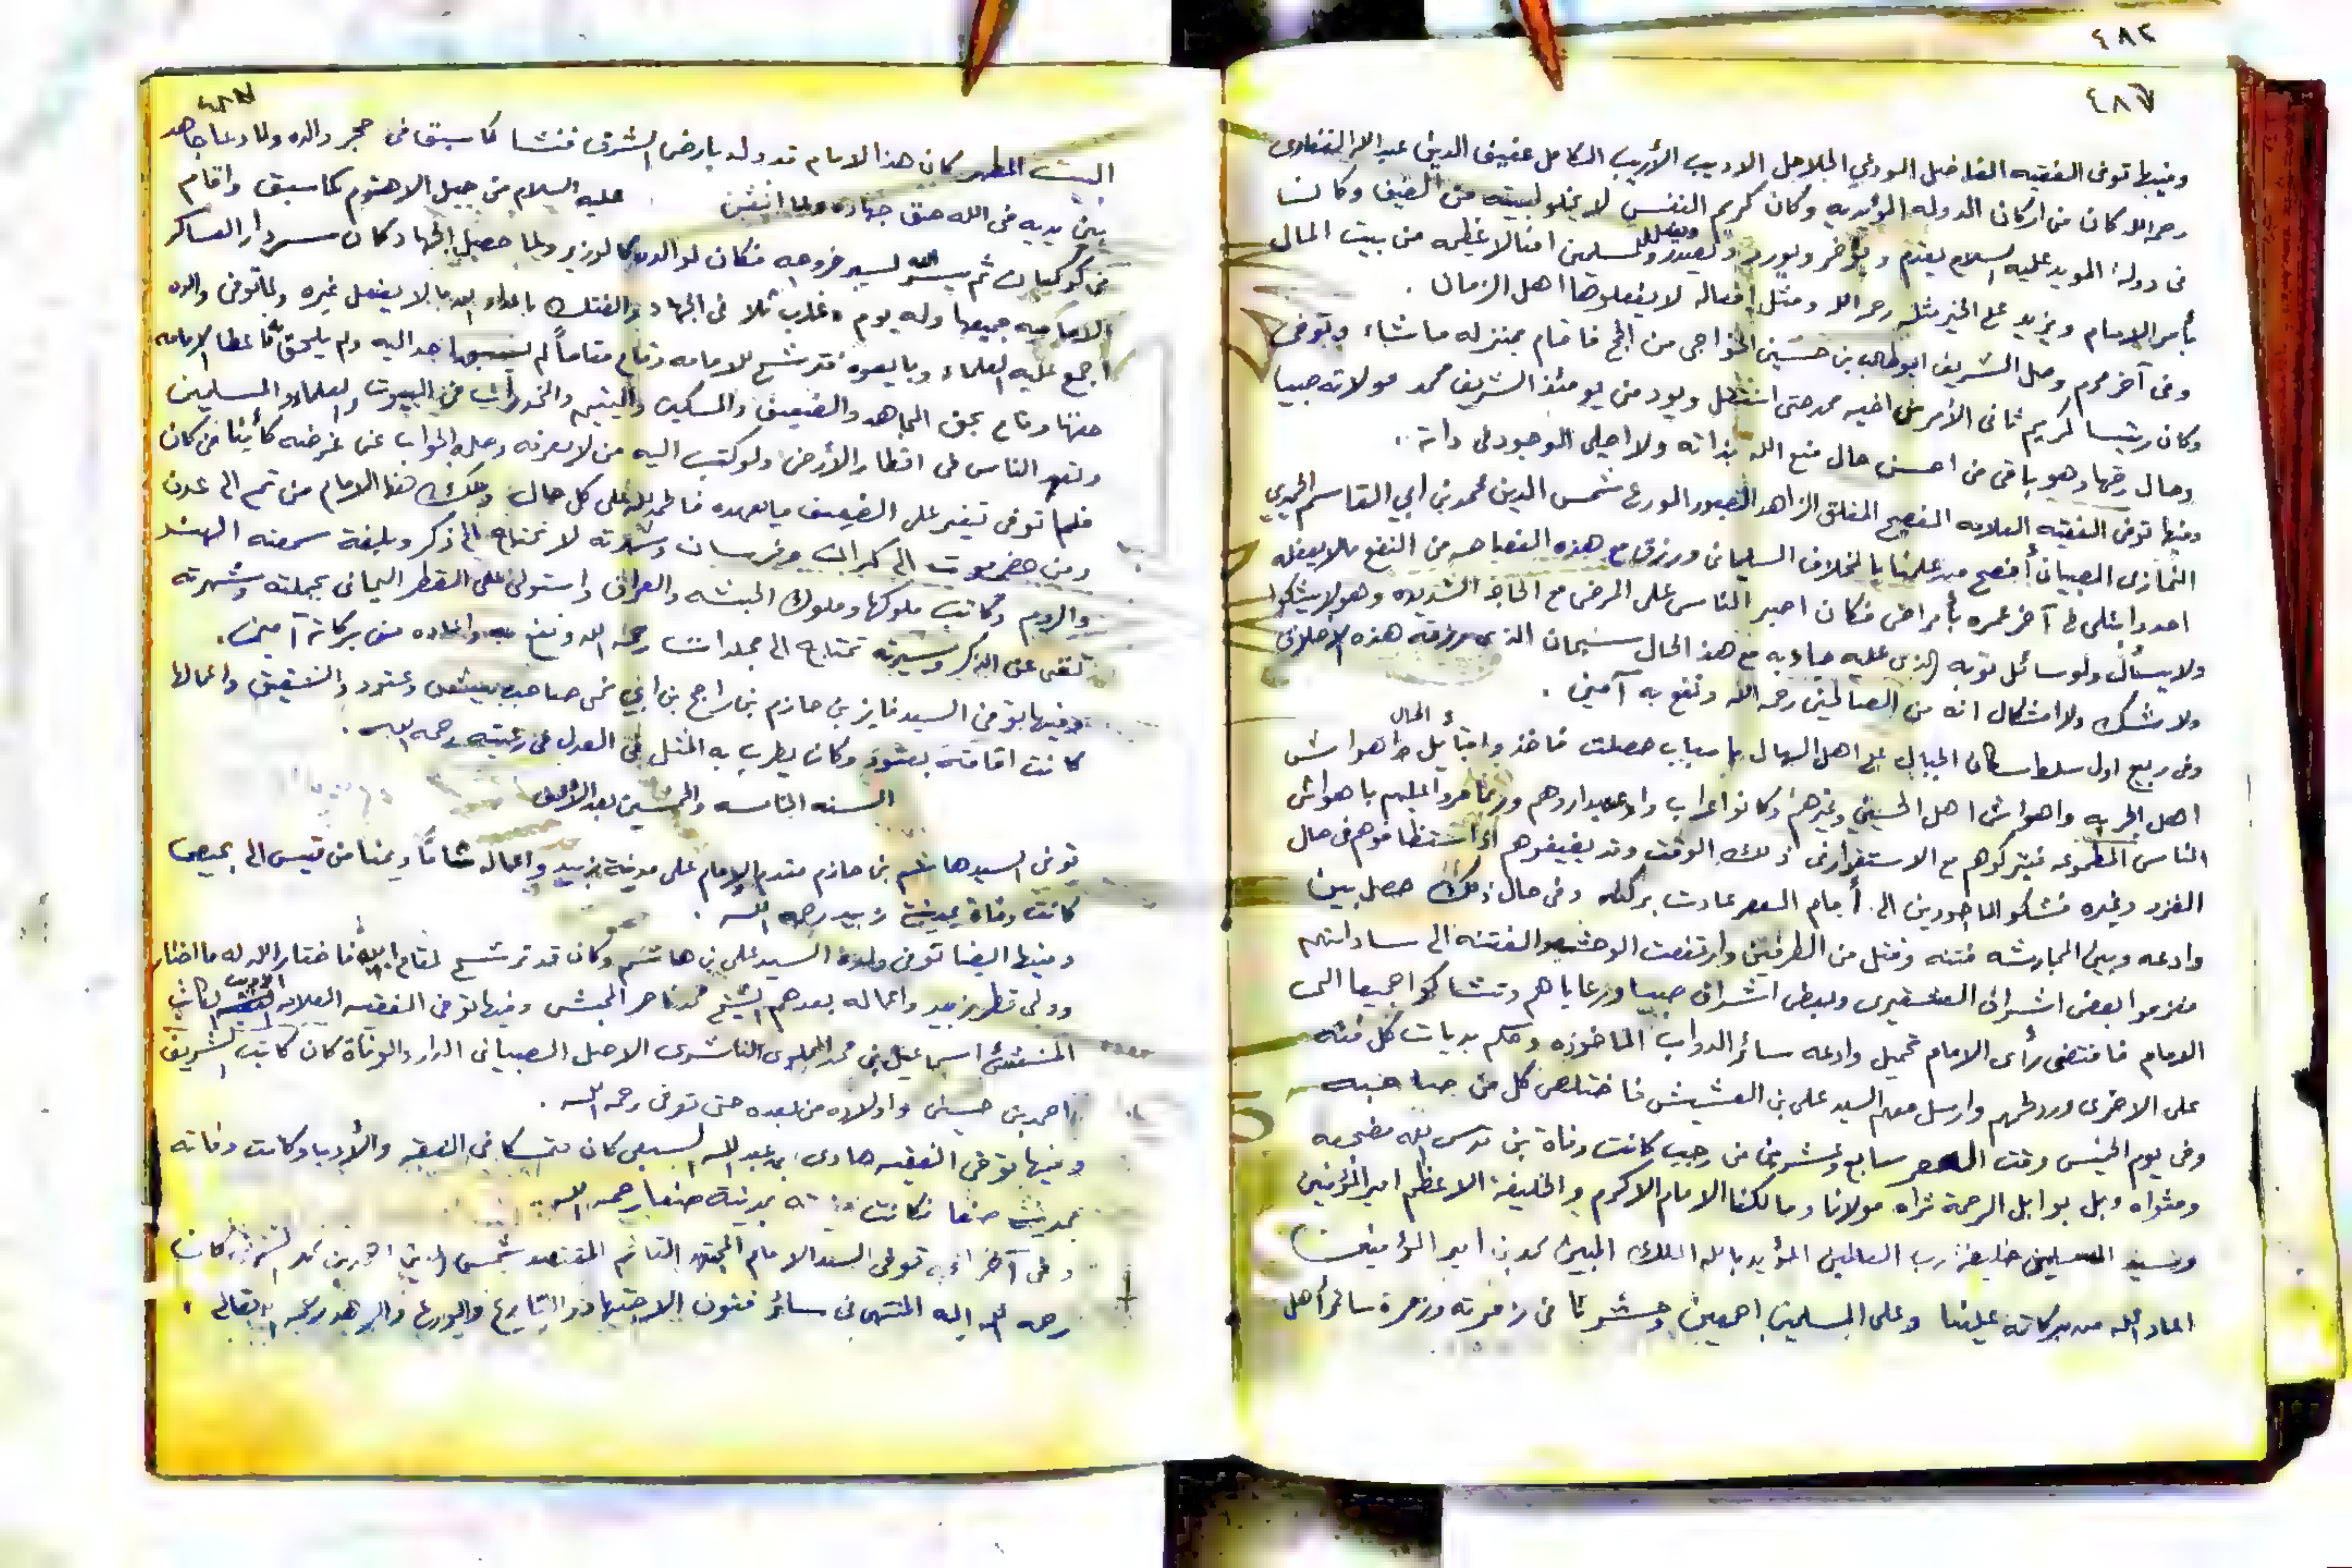 ٤٨٢
٤٨٧
وفيها توفى الفقيه الفاضل الولي الجلاجل الاديب الأريب الكامل عفيف الدين عبد الله
رحمه الله كان من اركان الدوله المؤيديه وكان كريم النفس لا يخلو بيته من الضيف وكانتا
فى دولة المويد عليه السلام يقدم ويؤخر ويورد ويصدر وللمسلمين افنالا عظيمه من بيت المال
بأمر الامام ويزيد على الخير مثله رحمه الله ومثل افعاله لا يفعلوها اهل الزمان .
وفى آخر محرم وصل الشريف ابوطالب بن حسين الخواجى من الحج فاقام بمنزله ما شاء وتوفى
وكان رئيسا كريم ثانى الأمر من اخيه محمد حتى انتقل ويود من يومئذ الشريف محمد مولاته صبيا
وحال رقمها وهو باقى من احسن حال متع الله بذاته ولا اخلى الوجود من ذاته ..
وفيها توفى الفقيه العلامه المفصح المفلق الزاهد الصبور الورع شمس الدين محمد بن ابي القاسم
النمازى الصبيانى أفصح من علمنا بالمخلاف السليمانى ورزق مع هذه الفصاحه من النفع ما لا يعقله
احد وابتلى فى آخر عمره بأمراض فكان اصبر الناس على المرض مع الحاجه الشديده وهو لا يشكوا
ولا يسأل ولو سائل ثوبه الذى عليه جاد به مع هذ الحال سبحان الذى رزقه هذه الاخلاق
ولا شك ولا اشكال انه من الصالحين رحمه الله ونفع به آمين .
وفى ربيع اول سلطا سكان الجبال على اهل السهال با سباب حصلت فاخذوا قبائل الجبال هواش
اهل الجربه واهواش اهل الحسينى وغيرهم وكانوا اعراب وادعه
الناس المطموعه فيتركوهم مع الاستقرار فى ذلك الوقت وقد يضيفوهم اذا استضافوهم فى حال
الغزو وغيره فشكو الماخوذين الى أمام العصر عادت بركاته وفى حال ذلك حصل بين
وادعه وبين فتنه وقتل من الطرفين وارتفعت الوحشه والفتنه الى ساداتهم
فلزموا بعض اشراف وبعض اشراف صبيا ورعاياهم وتشاكوا جميعا الى
الامام فاقتضى رأى الامام تحميل وادعه سائر الدواب الماخوذه وحكم بديات كل فئه
على الاخرى ورد حكمهم وارسل معهم السيد على بن العشيش فاختلص كل من صاحبه
وفى يوم الخميس وقت العصر سابع وعشرين من رجب كانت وفاة من قدس الله مضجعه
ومثواه وبل بوابل الرحمة ثراه مولانا ومالكنا الامام الاكرم والخليفة الاعظم امير المؤمنين
وسيد المسلمين خليفة رب العالمين المؤيد بالله الملك المبين محمد بن امير المؤمنين
اعاد الله من بركاته علينا وعلى المسلمين اجمعين وحشرنا فى زمرته وزمرة سائر أهل
البيت المطهر كان هذا الامام قد ولد بارض الشرق فنشا كما سبق فى حجر والده ولما دعا جاهد
بين يديه فى الله حق جهاده ولما عليه السلام من جبل الاهنوم كما سبق واقام
فى كوكبان ثم يسر الله لسير خروجه فكان لوالده كالوزير ولما حصل الجهاد كان سردار العساكر
الاماميه جميعها وله يوم غارب ثلا فى الجهاد والفتك باعداء الله ما لا يفعل غيره ولما توفى والده
اجمع عليه العلماء وبايعوه فترشح للامامه وقام مقاماً لم يسبقها احد اليه ولم يلحق فأعطا الامامه
حقها وقام بحق المجاهد والضعيف والمسكين واليتيم والمخدرات فى البيوت والعلماء والمسلمين
وتعهد الناس فى اقطار الأرض ولو كتب اليه من لا يعرفه وصله الجواب عن غرضه كأينا من كان
فلما توفى تغير على الضعيف ما يعهده فالحمد لله على كل حال وملك هذا الامام من ثم الى عدن
ومن حضرموت الى كمران وفرسان وشهرته لا تحتاج الى ذكر وبلغة سمعته الهند
والروم وكاتب ملوكها وملوك الحبشه والعراق واستولى على القطر اليمانى بجملته وشهرته
تغنى عن الذكر وسيرته تحتاج الى مجلدات رحمه الله ونفع به واعاده من بركاته آمين .
وفيها توفى السيد فايز بن حازم بن راجح بن ابي نمى صاحب بيش وعتود والشقيق واعمالها
كانت اقامته بعتود وكان يطرب به المثل فى العدل فى رعيته رحمه الله .
السنه الخامسه والخمسين بعد الألف
توفى السيد هاشم بن حازم مقدم الامام على مدينة زبيد واعماله شاما ويمنا من تعيس الى
كانت وفاة بمدينة زبيد رحمه الله .
وفيها ايضا توفى ولده السيد على بن هاشم وكان قد ترشح لمقام ابيه فاختار الله له ما اختار
وولى قطر زبيد واعماله بعدهم الشيخ محمد ناصر المحبشى وفيها توفى الفقيه العلامه الاديب الكاتب
المنشئ اسماعيل بن محمد المحلوى الناشرى الاصل الصبيانى الدار والوفاة كان كاتب الشريف
احمد بن حسين واولاده من بعده حتى توفى رحمه الله .
وفيها توفى الفقيه هادى بن عبد الله السبعى كان متمسكا فى الفقه والأدب وكانت وفاته
بمدينة صنعا فكانت بمدينة صنعا رحمه الله .
وفى آخر توفى السيد الامام المجتهد القائم المقتصد شمس الدين احمد بن محمد كان
رحمه الله اليه المنتهى فى سائر فنون الاجتهاد والتاريخ والورع والزهد رحمه الله تعالى .